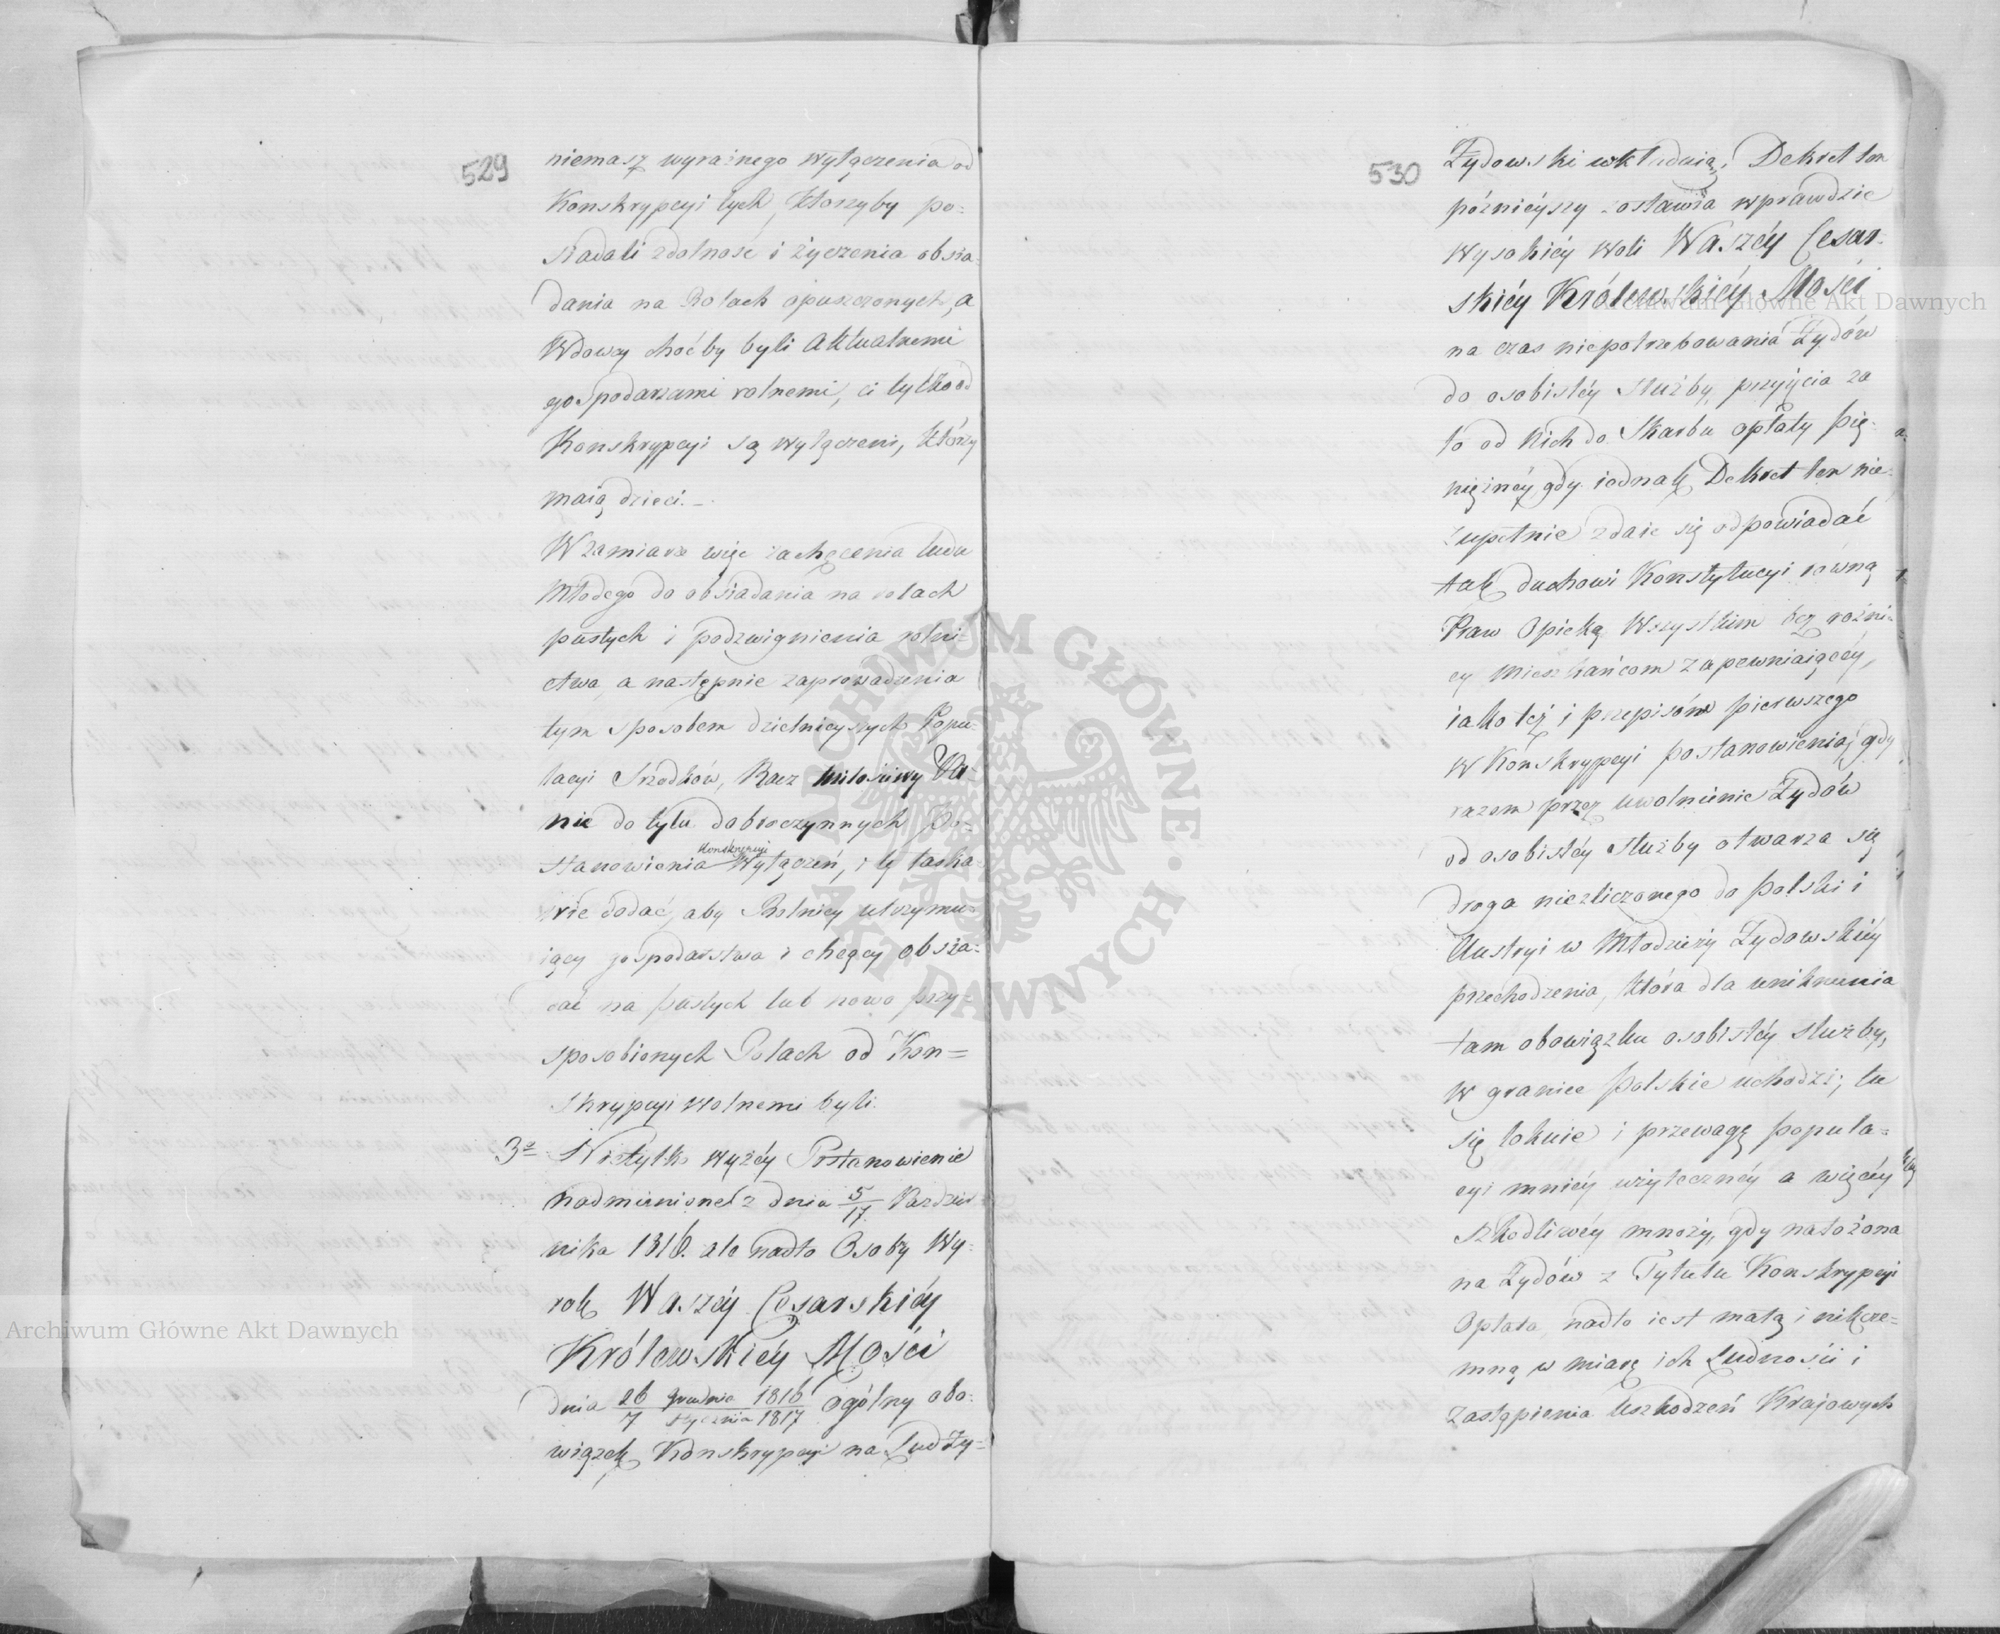 529
niemasz wyraźnego wyłączenia od
Konskrypcyi tych, którzyby po=
siadali zdolność i życzenia obsia=
dania na Rolach opuszczonych, a
Wdowcy choćby byli aktualnemi
gospodarzami rolnemi, ci tylko od
Konskrypcyi są wyłączeni, którzy
maią dzieci.
W zamiarze więc zachęcenia ludu
Młodego do obsiadania na rolach
pustych i podzwignienia rolni=
ctwa, a następnie zaprowadzenia
tym sposobem dzielnieyszych Popu=
lacyi Srzodków, Racz Miłościwy Pa=
nie do tylu dobroczynnych Po=
stanowienia Konskrypcyi Wyłączeń, i tę łaska=
wie dodać, aby Rolnicy utrzymu=
iący gospodarstwa i chcący obsia=
dać na pustych lub nowo przy=
sposobionych Rolach od Kon=
skrypcyi wolnemi byli.
3e Nietylko wyżéy Postanowienie
nadmienione z dnia 5/17 Paździer
nika 1816. ale nadto Osoby Wy=
rok Waszéy Cesarskiéy
Królewskiéy Mości
dnia 26 grudnia 1816 / 7 stycznia 1817 ogólny obo=
wiązek Konskrypcyi na Lud Ży=
530
Żydowski wkładaią, Dekret ten
późnieyszy zostawia wprawdzie
wysokiéy woli Waszéy Cesar=
skiéy Królewskiéy Mości
na czas niepotrzebowania Żydów
do osobistéy służby, przyjęcia za
to od Nich do Skarbu opłaty pie=
niężnéy, gdy iednak Dekret ten nie=
zupełnie zdaie się odpowiadać
tak duchowi Konstytucyi równą
Praw Opieką Wszystkim bez różni=
cy Mieszkańcom zapewniaiącéy,
iako też i przepisów pierwszego
w Konskrypcyi postanowienia; gdy
razem przez uwolnienie Żydów
od osobistéy służby otwarza się
droga niezliczonego do Polski i
Austryi w Młodzieży Żydowskiéy
przechodzenia, która dla uniknienia
tam obowiązku osobistéy służby,
w granice Polskie uchodzi; tu
się lokuie i przewagę popula=
cyi mniéy użytecznéy a więcéy
szkodliwéy mnoży, gdy nałożona
na Żydów z Tytułu Konskrypcyi
Opłata, nadto iest małą i nikcze=
mną w miarę ich Ludności i
zastąpienia Uszkodzeń Kraiowych
Archiwum Główne Akt Dawnych
Archiwum Główne Akt Dawnych
ARCHIWUM GŁÓWNE · AKT DAWNYCH ·